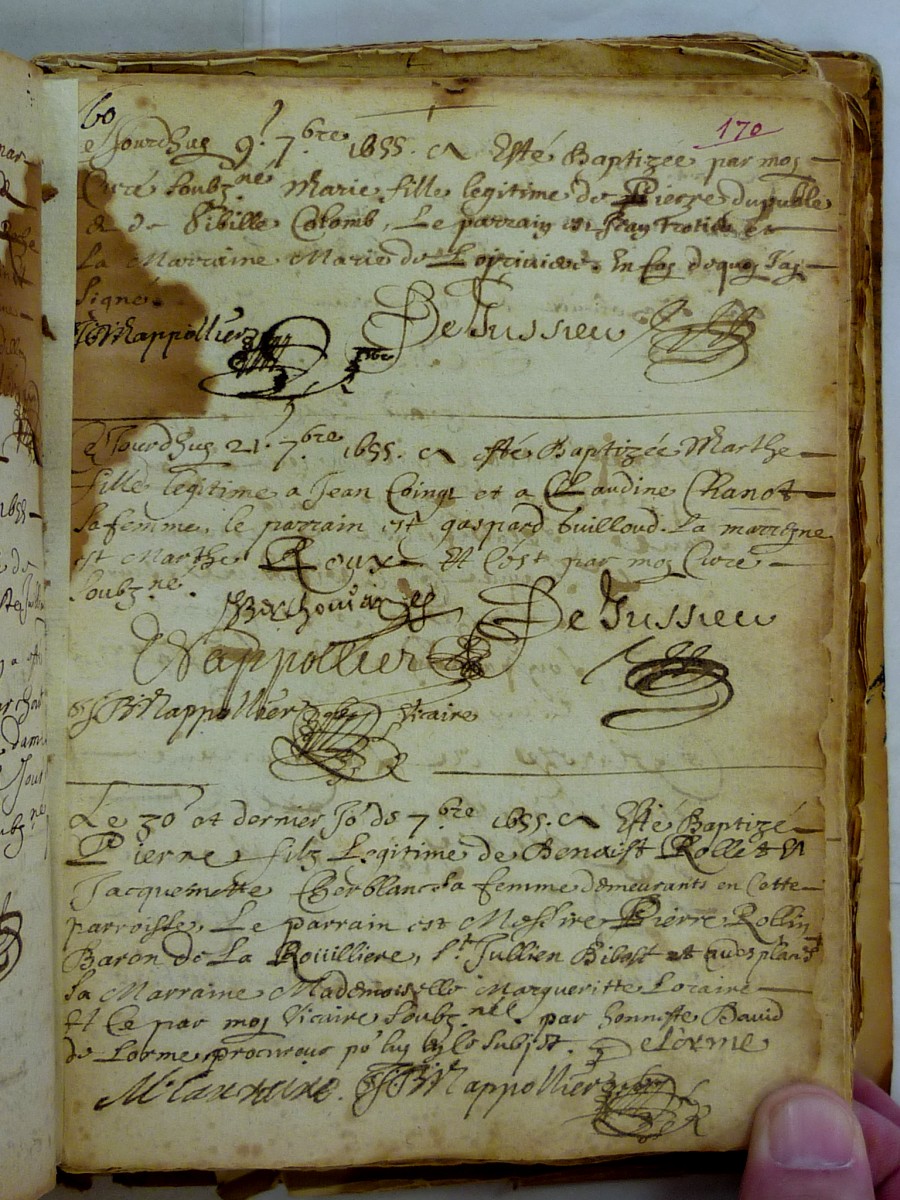 60
170
Ce Jourdhuy 9.e 7bre 1655. a Esté Baptizée par moy
Curé soubz.né Marie fille legitime de Pierre dupuble
& de Sibille Colomb, Le parrain est
La Marraine Marie de En foy dequoy J'ay
signé.
Mappollier De Jussieu
Ce Jourdhuy 21. 7bre 1655. a esté Baptizée Marthe
fille legitime a Jean Coingt et a Claudine Chanot
sa femme, le parrain est gaspard builloud. La marregne
est Marthe Roux Et C'est par moy Curé
soubz.né.
De Jussieu
Nappollier
Mappollier vicaire
Le 30e et dernier Jo.r de 7bre 1655. a Esté Baptizé
Pierre filz Legitime de Benoist Rollet &
Jacquemette Cherblanc sa femme demeurants en Cette
parroisse, Le parrain est Messire Pierre Rollin
Baron de La Rouilliere, St. Jullien Bibost et
La Marraine Mademoiselle Margueritte Loraine
Et Ce par moy Vicaire soubz.né par honneste David
de Lorme procureur po.r luy DeLorme
M. Lauraine. Mappollier